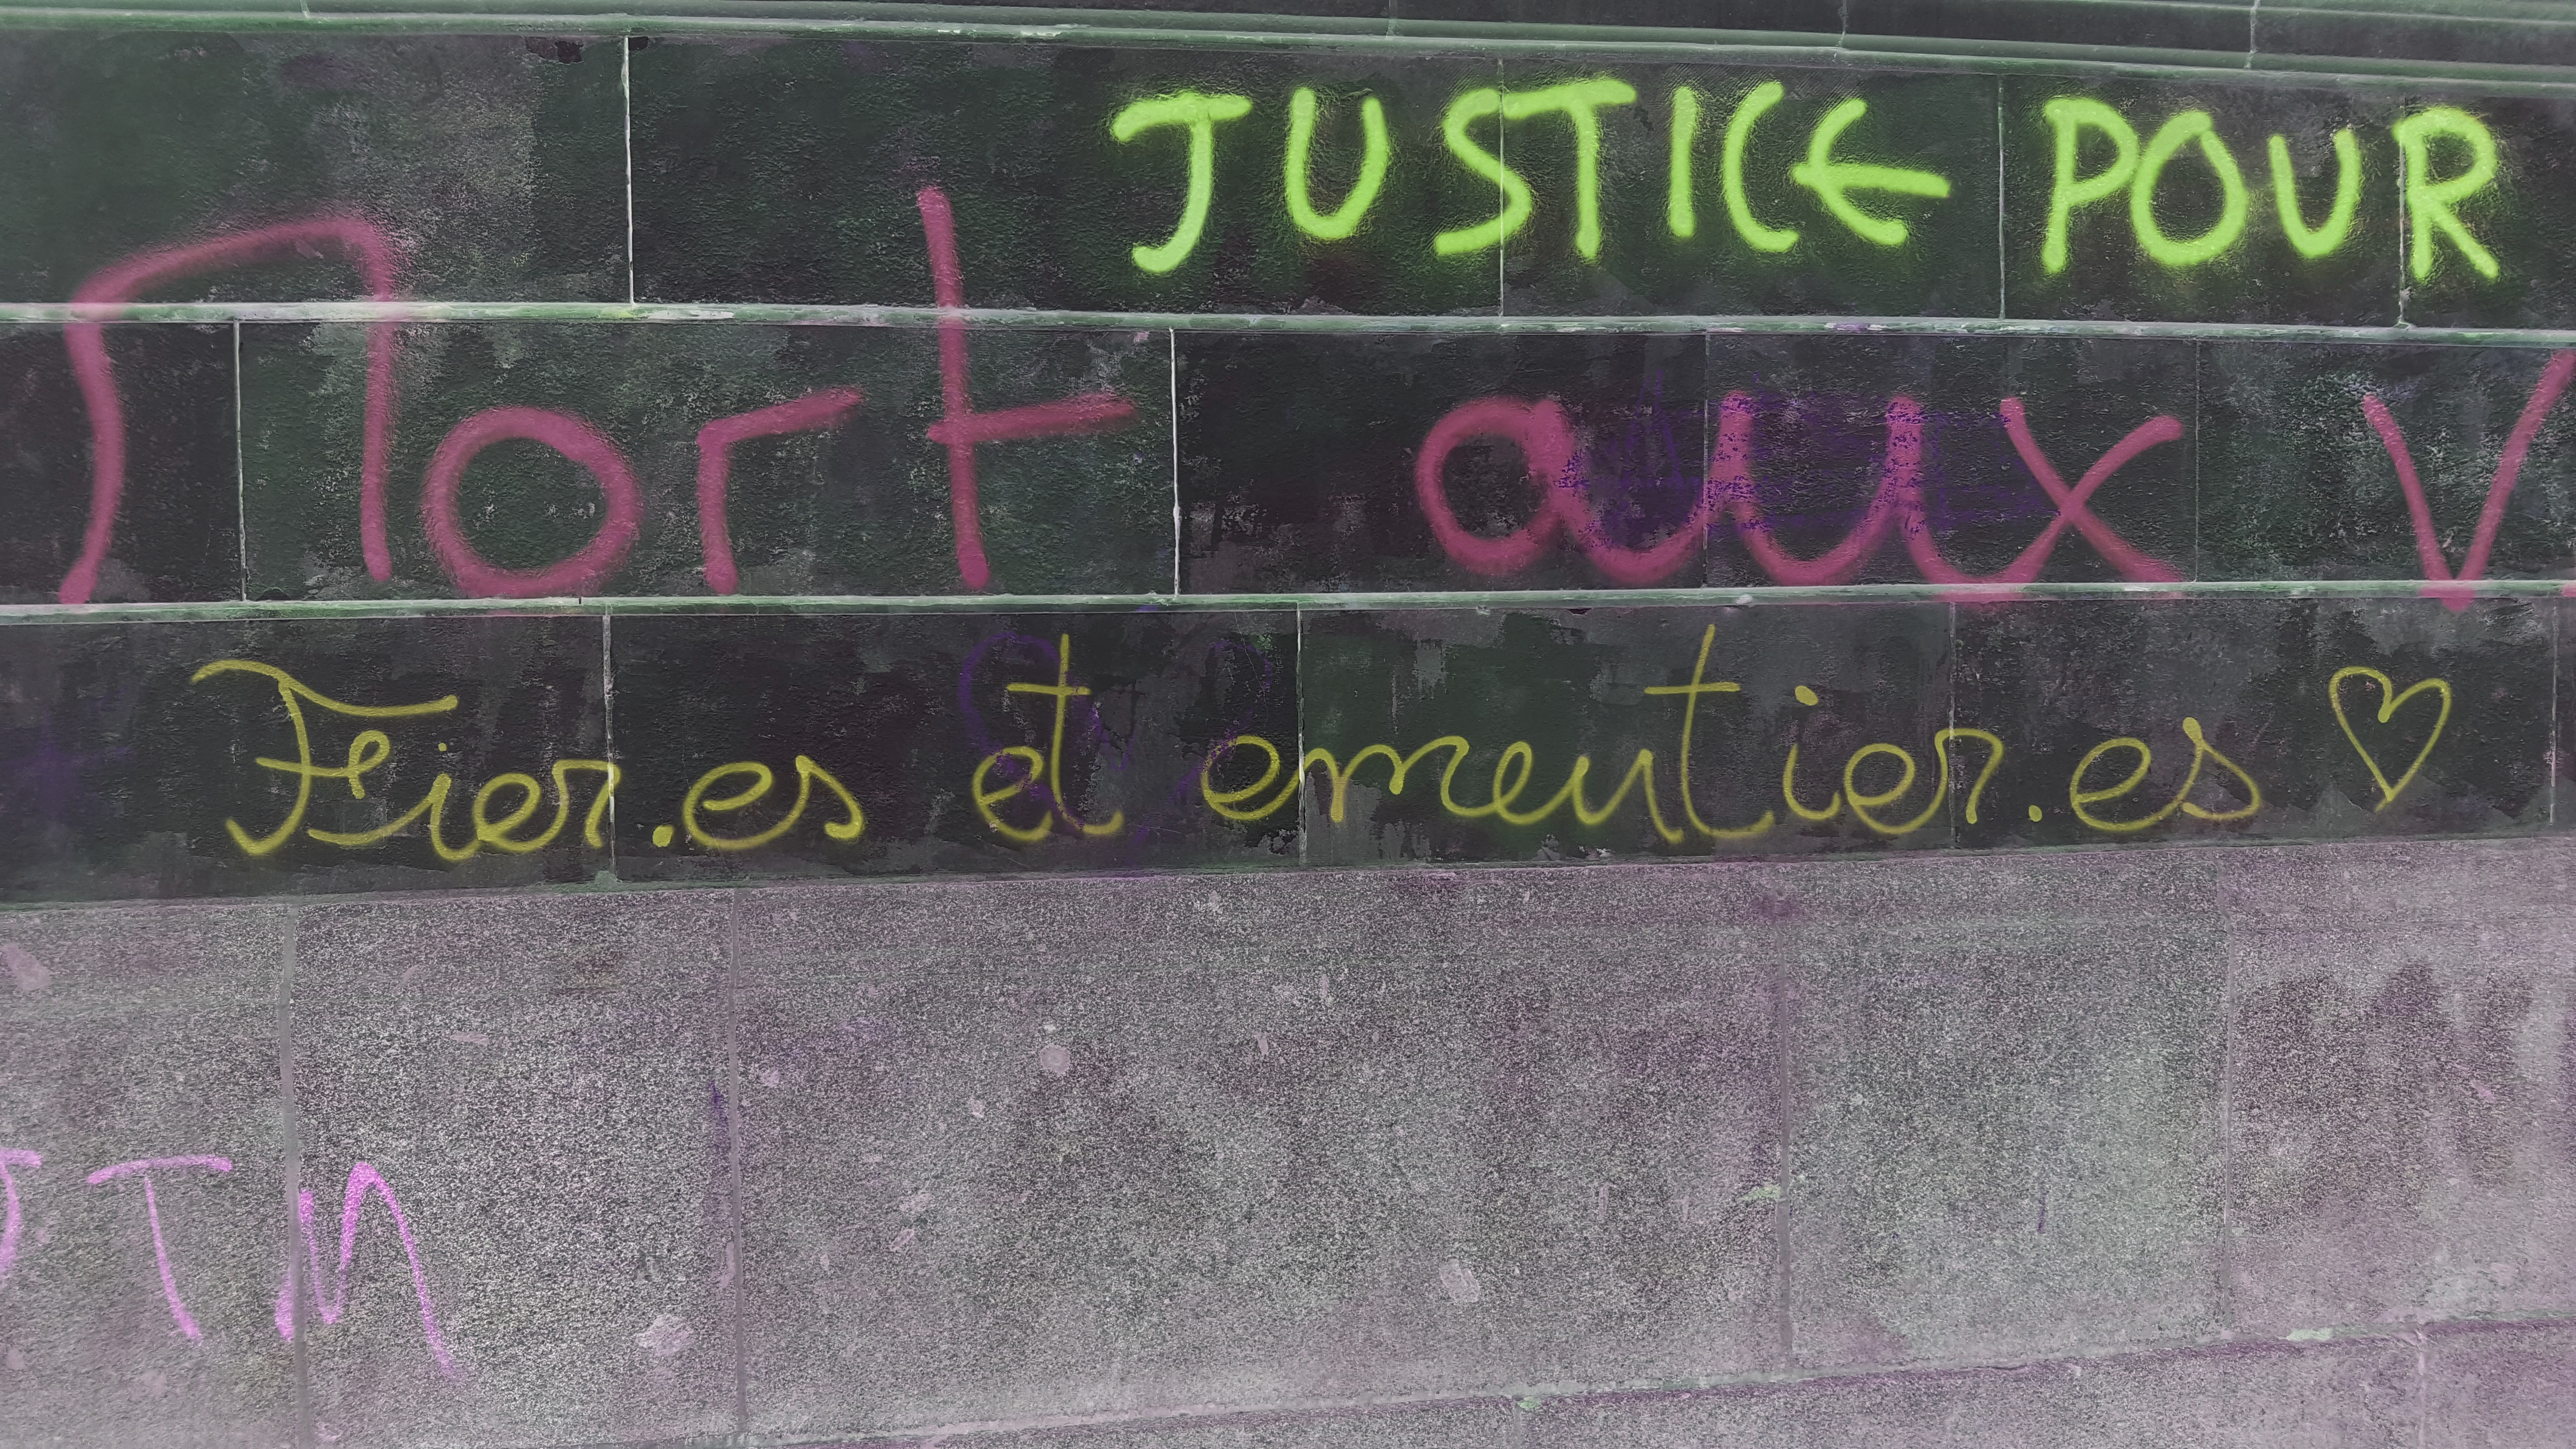 JUSTICE POUR
Mort aux V
Fier.es et emeutier.es
TM